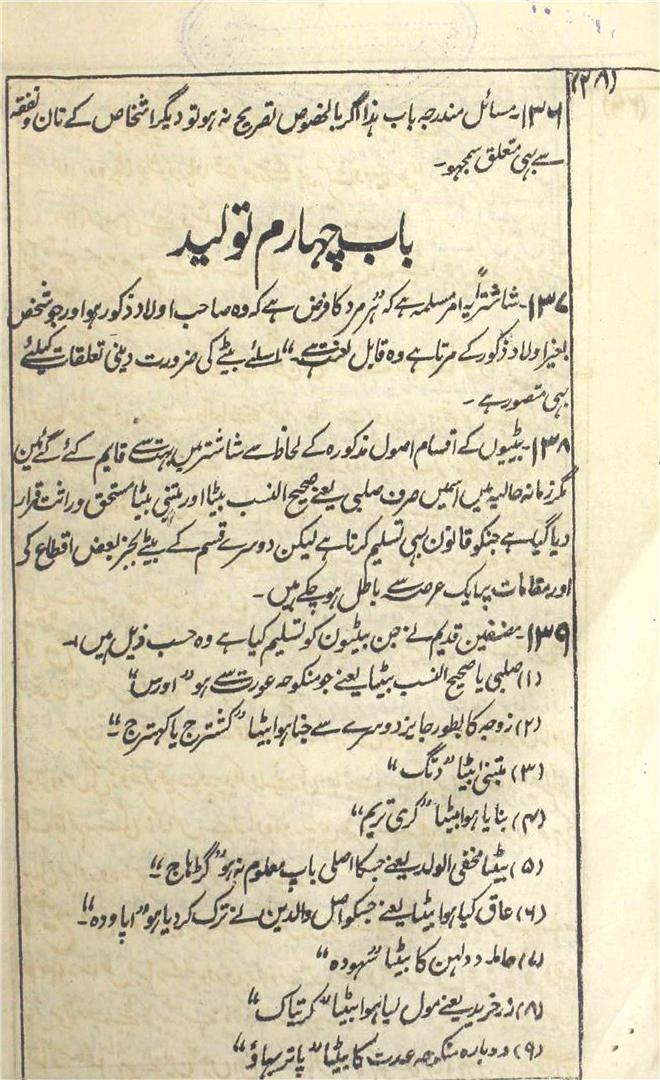 (۲۸)
۱۳۶۔ مسائل مندرجہ باب ہذا اگر بالخصوص تصریح نہ ہو تو دیگر اشخاص کے نان و نفقہ
سے بہی متعلق سمجھو۔
باب چہارم تولید
۱۳۷۔ شاشتراً یہ امر مسلمہ ہے کہ "ہر مرد کا فرض ہے کہ وہ صاحب اولاد ذکور ہو اور جو شخص
بغیر اولاد ذکور کے مرتا ہے وہ قابل لعنت ہے۔" اسلئے بیٹے کی ضرورت دینی تعلقات کیلئے
بہی متصور ہے۔
۱۳۸۔ بیٹیوں کے اقسام اصول مذکورہ کے لحاظ سے شاشتر میں بہت سے قایم کے گئے ہین
مگر زمانہ حالیہ میں اسمیں صرف صلبی یعنے صحیح النسب بیٹا اور متبنی بیٹا مستحق وراثت قرار
دیا گیا ہے جنکو قانون بہی تسلیم کرتا ہے لیکن دوسرے قسم کے بیٹے بجز بعض اقطاع کی
اور مقامات پر ایک عرصہ سے باطل ہو چکے ہیں۔
۱۳۹۔ مصنفین قدیم نے جن بیٹیون کو تسلیم کیا ہے وہ حسب ذیل ہیں :۔
(۱) صلبی یا صحیح النسب بیٹا یعنے جو منکوحہ عورت سے ہو "اورس"
(۲) زوجہ کا بطور جایز دوسرے سے جنا ہوا بیٹا "کشترج یا کہترج"۔
(۳) متبنی بیٹا "دتگ"
(۴) بنایا ہوا بیٹا "کری تریم"
(۵) بیٹا مخفی الولد یعنے جسکا اصلی باپ معلوم نہ ہو "گڑہاج"۔
(۶) عاق کیا ہوا بیٹا یعنے جسکو اصل والدین نے ترک کر دیا ہو "اپاودہ"۔
(۷) حاملہ دولہن کا بیٹا "سہودہ"
(۸) زرخرید یعنے مول لیا ہوا بیٹا "کرتیاک"
(۹) دوبارہ منکوحہ عورت کا بیٹا "پانر بہاؤ"